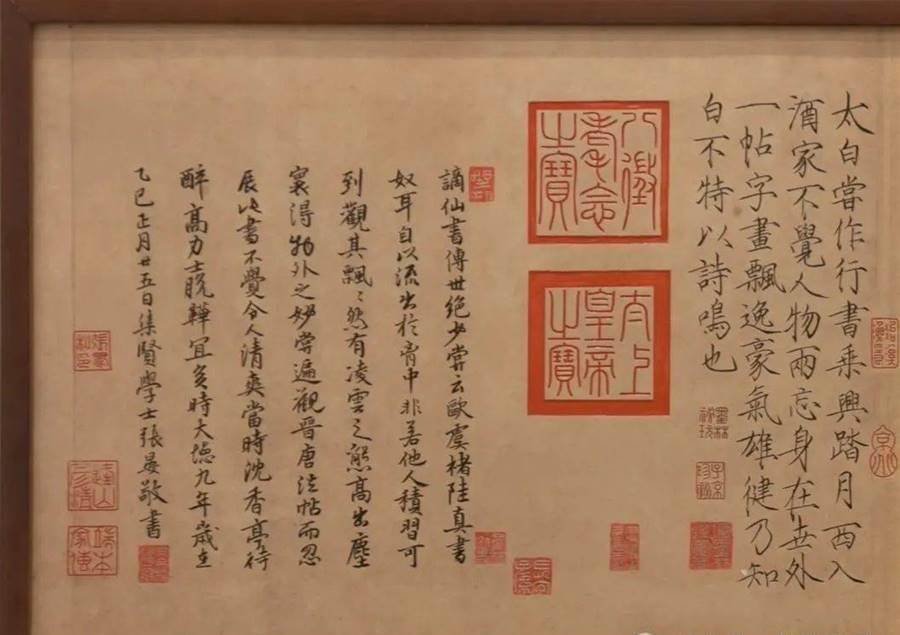 太白嘗作行書乘興踏月西入
酒家不覺人物兩忘身在世外
一帖字畫飄逸豪氣雄健乃知
白不特以詩鳴也
八徵耄念之寶
太上皇帝之寶
墨林祕玩
子京珍祕
謫仙書傳世絕少嘗云歐虞褚陸真書
奴耳自以流出於胷中非若他人積習可
到觀其飄〻然有凌雲之態高出塵
寰得物外之妙嘗遍觀晉唐法帖而忽
展此書不覺令人清爽當時沈香亭待
醉高力士脫鞾宜矣時大德九年歲在
乙巳正月廿五日集賢學士張晏敬書